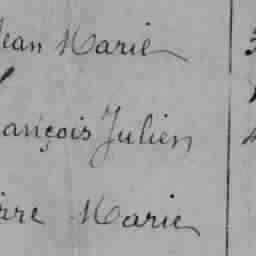 Jean Marie
François Julien
Pierre Marie